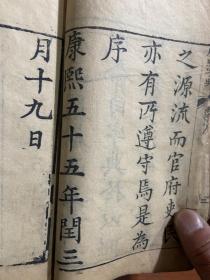 之源流而官府吏民
亦有所遵守焉是為
序
康熙五十五年閏三
月十九日